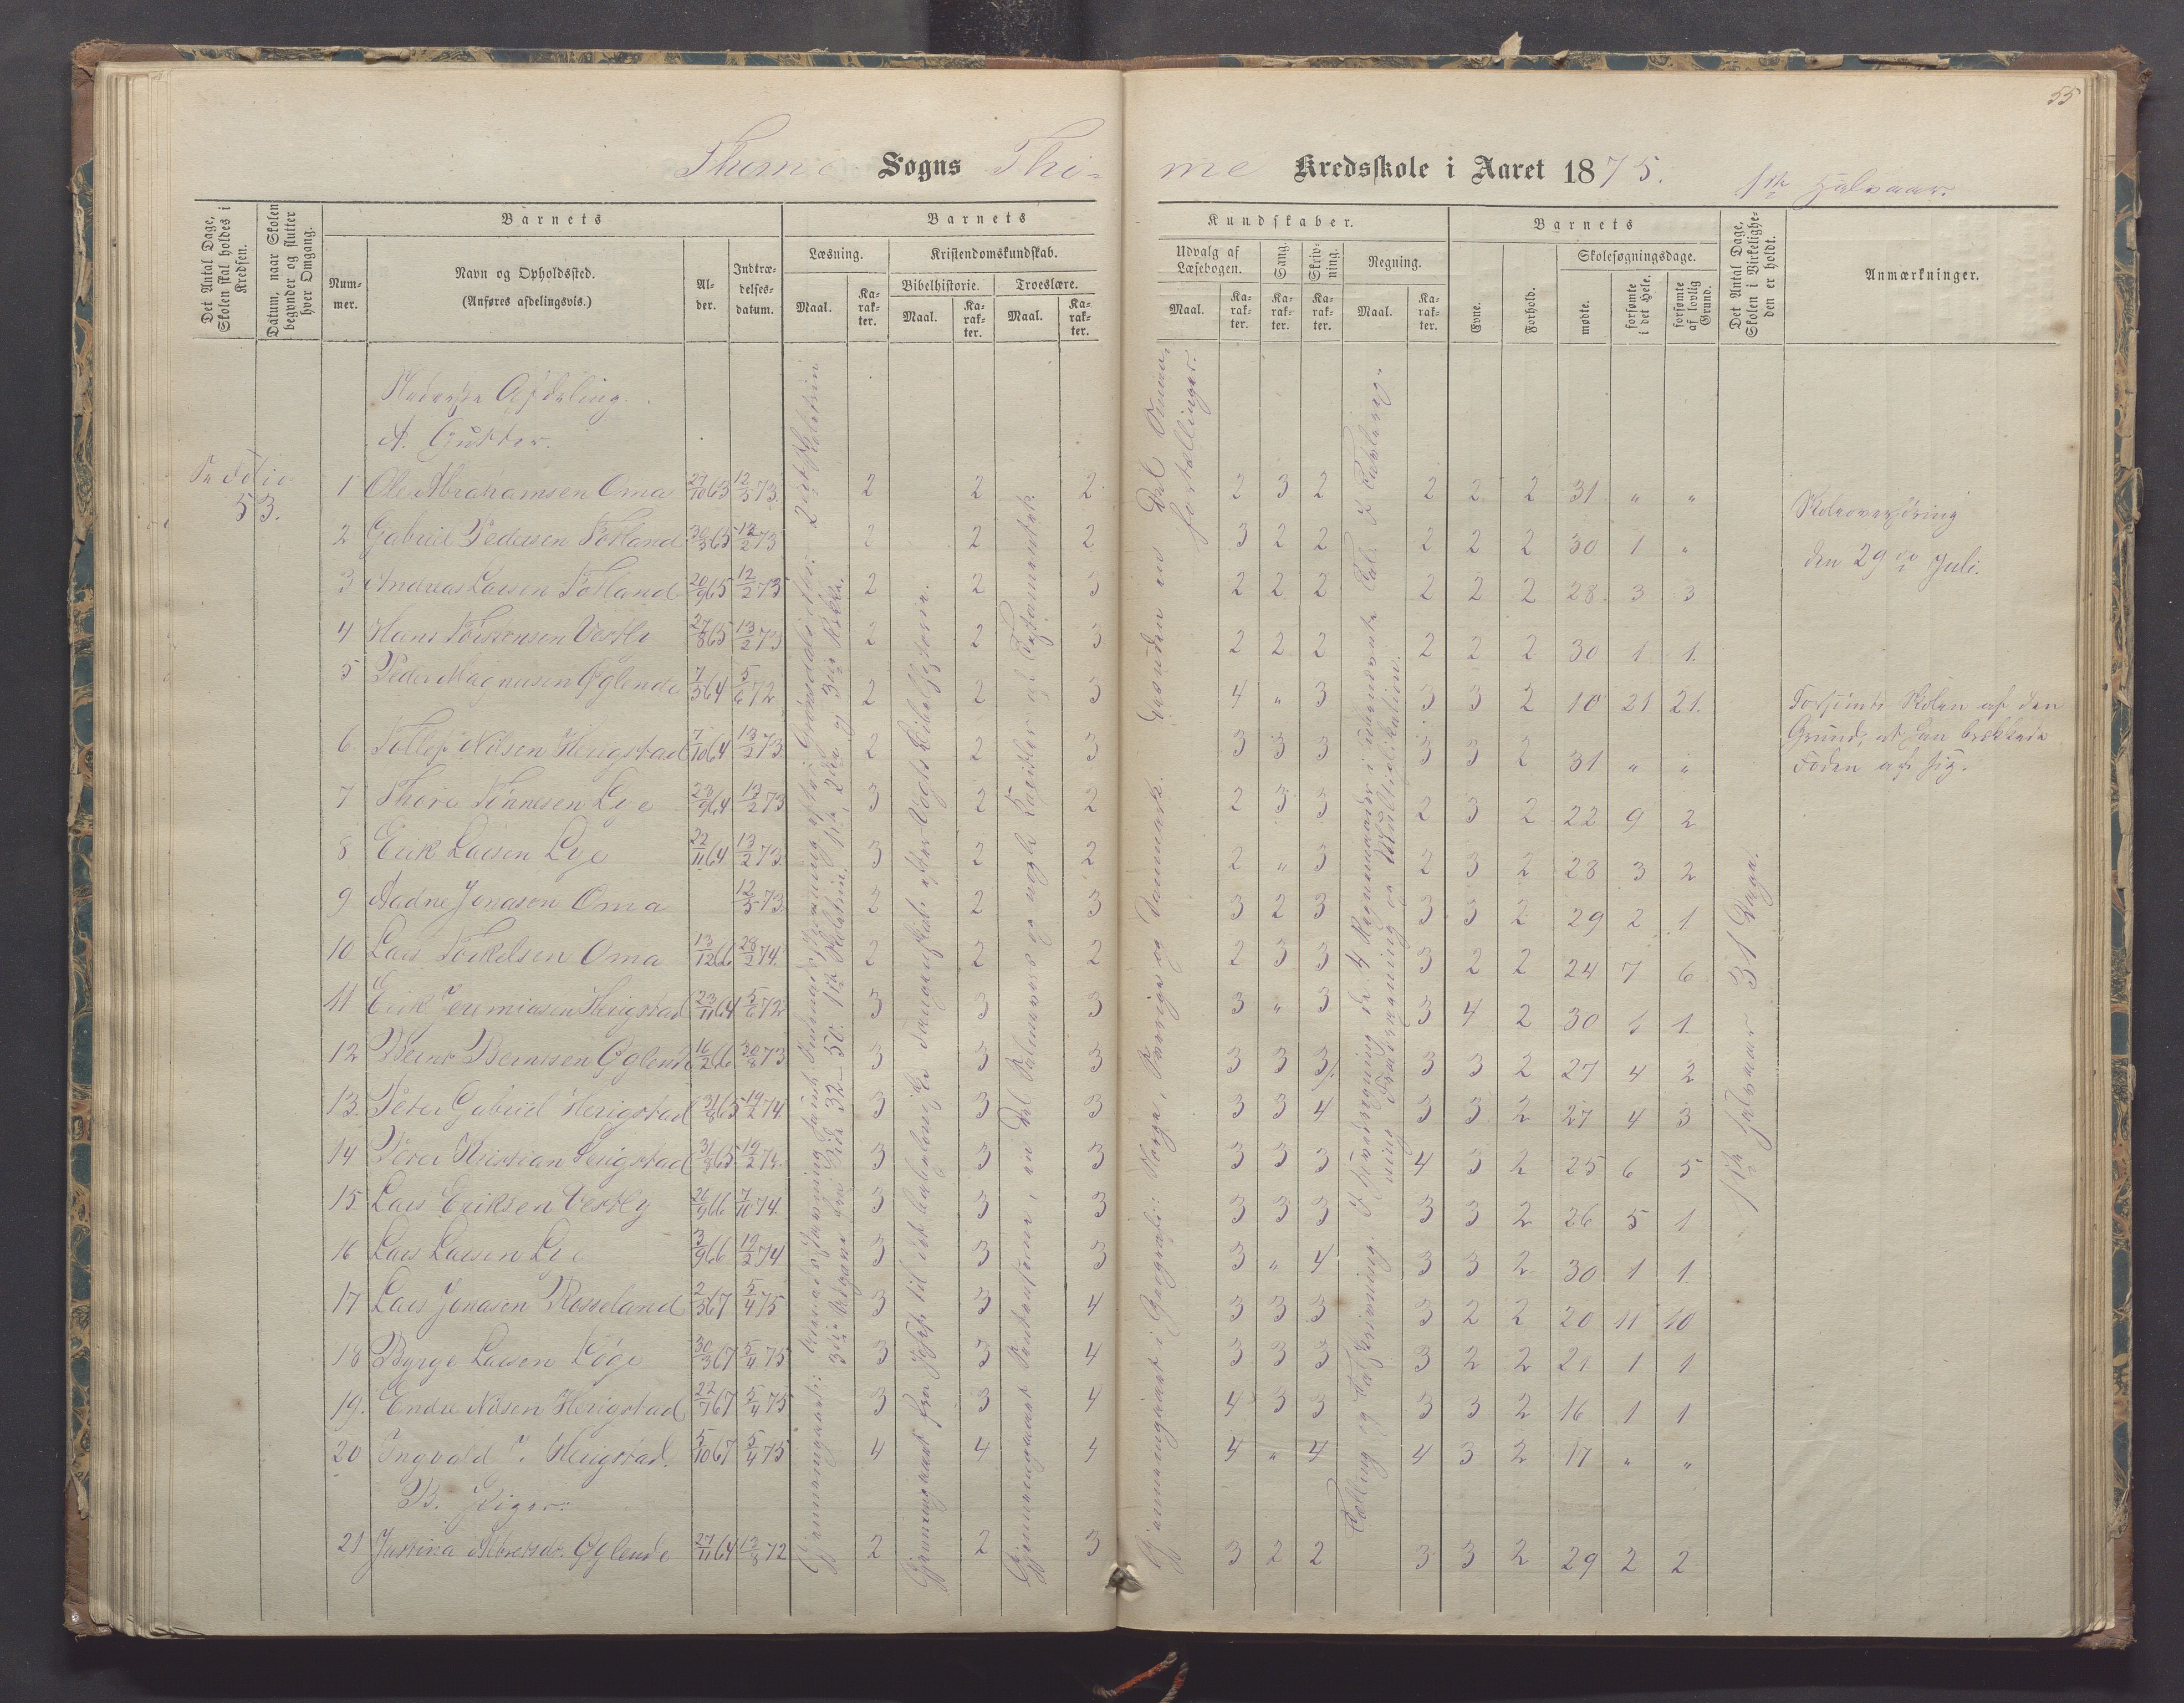 55
Thime Sogns Thi-
me Kredsskole i Aaret 1875. 1ste Halvaar.
Det Antal Dage, Skolen skal holdes i Kredsen.
Datum, naar Skolen begynder og slutter hver Omgang.
Barnets
Num-
mer.
Navn og Opholdssted.
(Anføres afdelingsvis.)
Al-
der.
Indtræ-
delses-
datum.
Barnets
Læsning.
Kristendomskundskab.
Bibelhistorie.
Troeslære.
Maal.
Ka-
rak-
ter.
Maal.
Ka-
rak-
ter.
Maal.
Ka-
rak-
ter.
Kundskaber.
Udvalg af
Læsebogen.
Sang.
Skriv-
ning.
Regning.
Maal.
Ka-
rak-
ter.
Ka-
rak-
ter.
Ka-
rak-
ter.
Maal.
Ka-
rak-
ter.
Barnets
Evne.
Forhold.
Skolesøgningsdage.
mødte.
forsømte
i det Hele.
forsømte
af lovlig
Grund.
Det Antal Dage, Skolen i Virkelighe-
den er holdt.
Anmærkninger.
Nederste Afdeling.
A. Gutter.
Se Folio
53.
1 Ole Abrahamsen Oma 27/10 63 12/5 73. 2 2 2 2 3 2 2 2 2 31 " "
2 Gabriel Pedersen Fotland 30/3 65 12/2 73 2 2 2 3 2 2 2 2 2 30 1 "
3 Andreas Larsen Fotland 20/9 65 12/2 73 2 2 3 2 2 2 2 2 2 28 3 3
4 Hans Torkensen Vestly 27/8 65 13/2 73 2 2 3 2 2 2 2 2 2 30 1 1
5 Peder Magnusen Øglende 7/3 64 5/6 72 2 2 3 4 " 3 3 3 2 10 21 21.
6 Tollef Nilsen Herigstad 7/10 64 13/2 73 2 2 3 3 3 3 3 3 2 31 " "
7 Thore Tønnesen Lye 23/9 64 13/2 73 3 2 2 2 3 3 2 3 2 22 9 2
8 Erik Larsen Lye 22/11 64 13/2 73 3 2 2 2 " 3 2 3 2 28 3 2
9 Aadne Jonasen Oma 12/5 73. 2 2 3 3 2 3 3 3 2 29 2 1
10 Lars Torkelsen Oma 13/12 66 28/2 74. 2 2 2 2 3 3 3 2 2 24 7 6
11 Erik Jeremiasen Herigstad 23/11 64 5/6 72 3 3 3 3 " 3 3 4 2 30 1 1
12 Bernt Berntsen Øglend 16/2 66 30/8 73 3 3 3 3 3 3 3 3 2 27 4 2
13. Peter Gabriel Herigstad 31/8 65 19/2 74. 3 3 3 3 3 4 3 3 2 27 4 3
14 Peter Kristian Herigstad 31/8 65 19/2 74. 3 3 3 3 3 3 4 3 2 25 6 5
15 Lars Eriksen Vestly 20/9 66 7/10 74. 3 3 3 3 3 3 3 3 2 26 5 1
16 Lars Larsen Lye 3/9 66 19/2 74 3 3 3 3 " 4 3 3 2 30 1 1
17 Lars Jonasen Rosseland 2/3 67 5/4 75 3 3 4 3 3 3 3 2 2 20 11 10
18 Børge Larsen Løge 30/3 67 5/4 75 3 3 4 3 3 3 3 2 2 21 1 1
19. Endre Nilsen Herigstad 22/7 67 5/4 75 3 3 4 4 3 3 3 3 2 16 1 1
20 Ingvald " Herigstad. 5/10 67 5/4 75 4 4 4 4 " 4 4 3 2 17 " "
B. Piger.
21 Justina Albretsdr. Øglende 27/11 64 13/8 72 2 2 3 3 2 2 3 3 2 29 2 2
Gjennemgaaet fra Josef til det babyloniske Fangenskab efter Vogts Bibelhistorie.
1ste Halvaar 31 Dage.
Skoleoverhøring
den 29de Juli.
Forsømte Skolen af den
Grund, at han brækkede
Foden af sig.